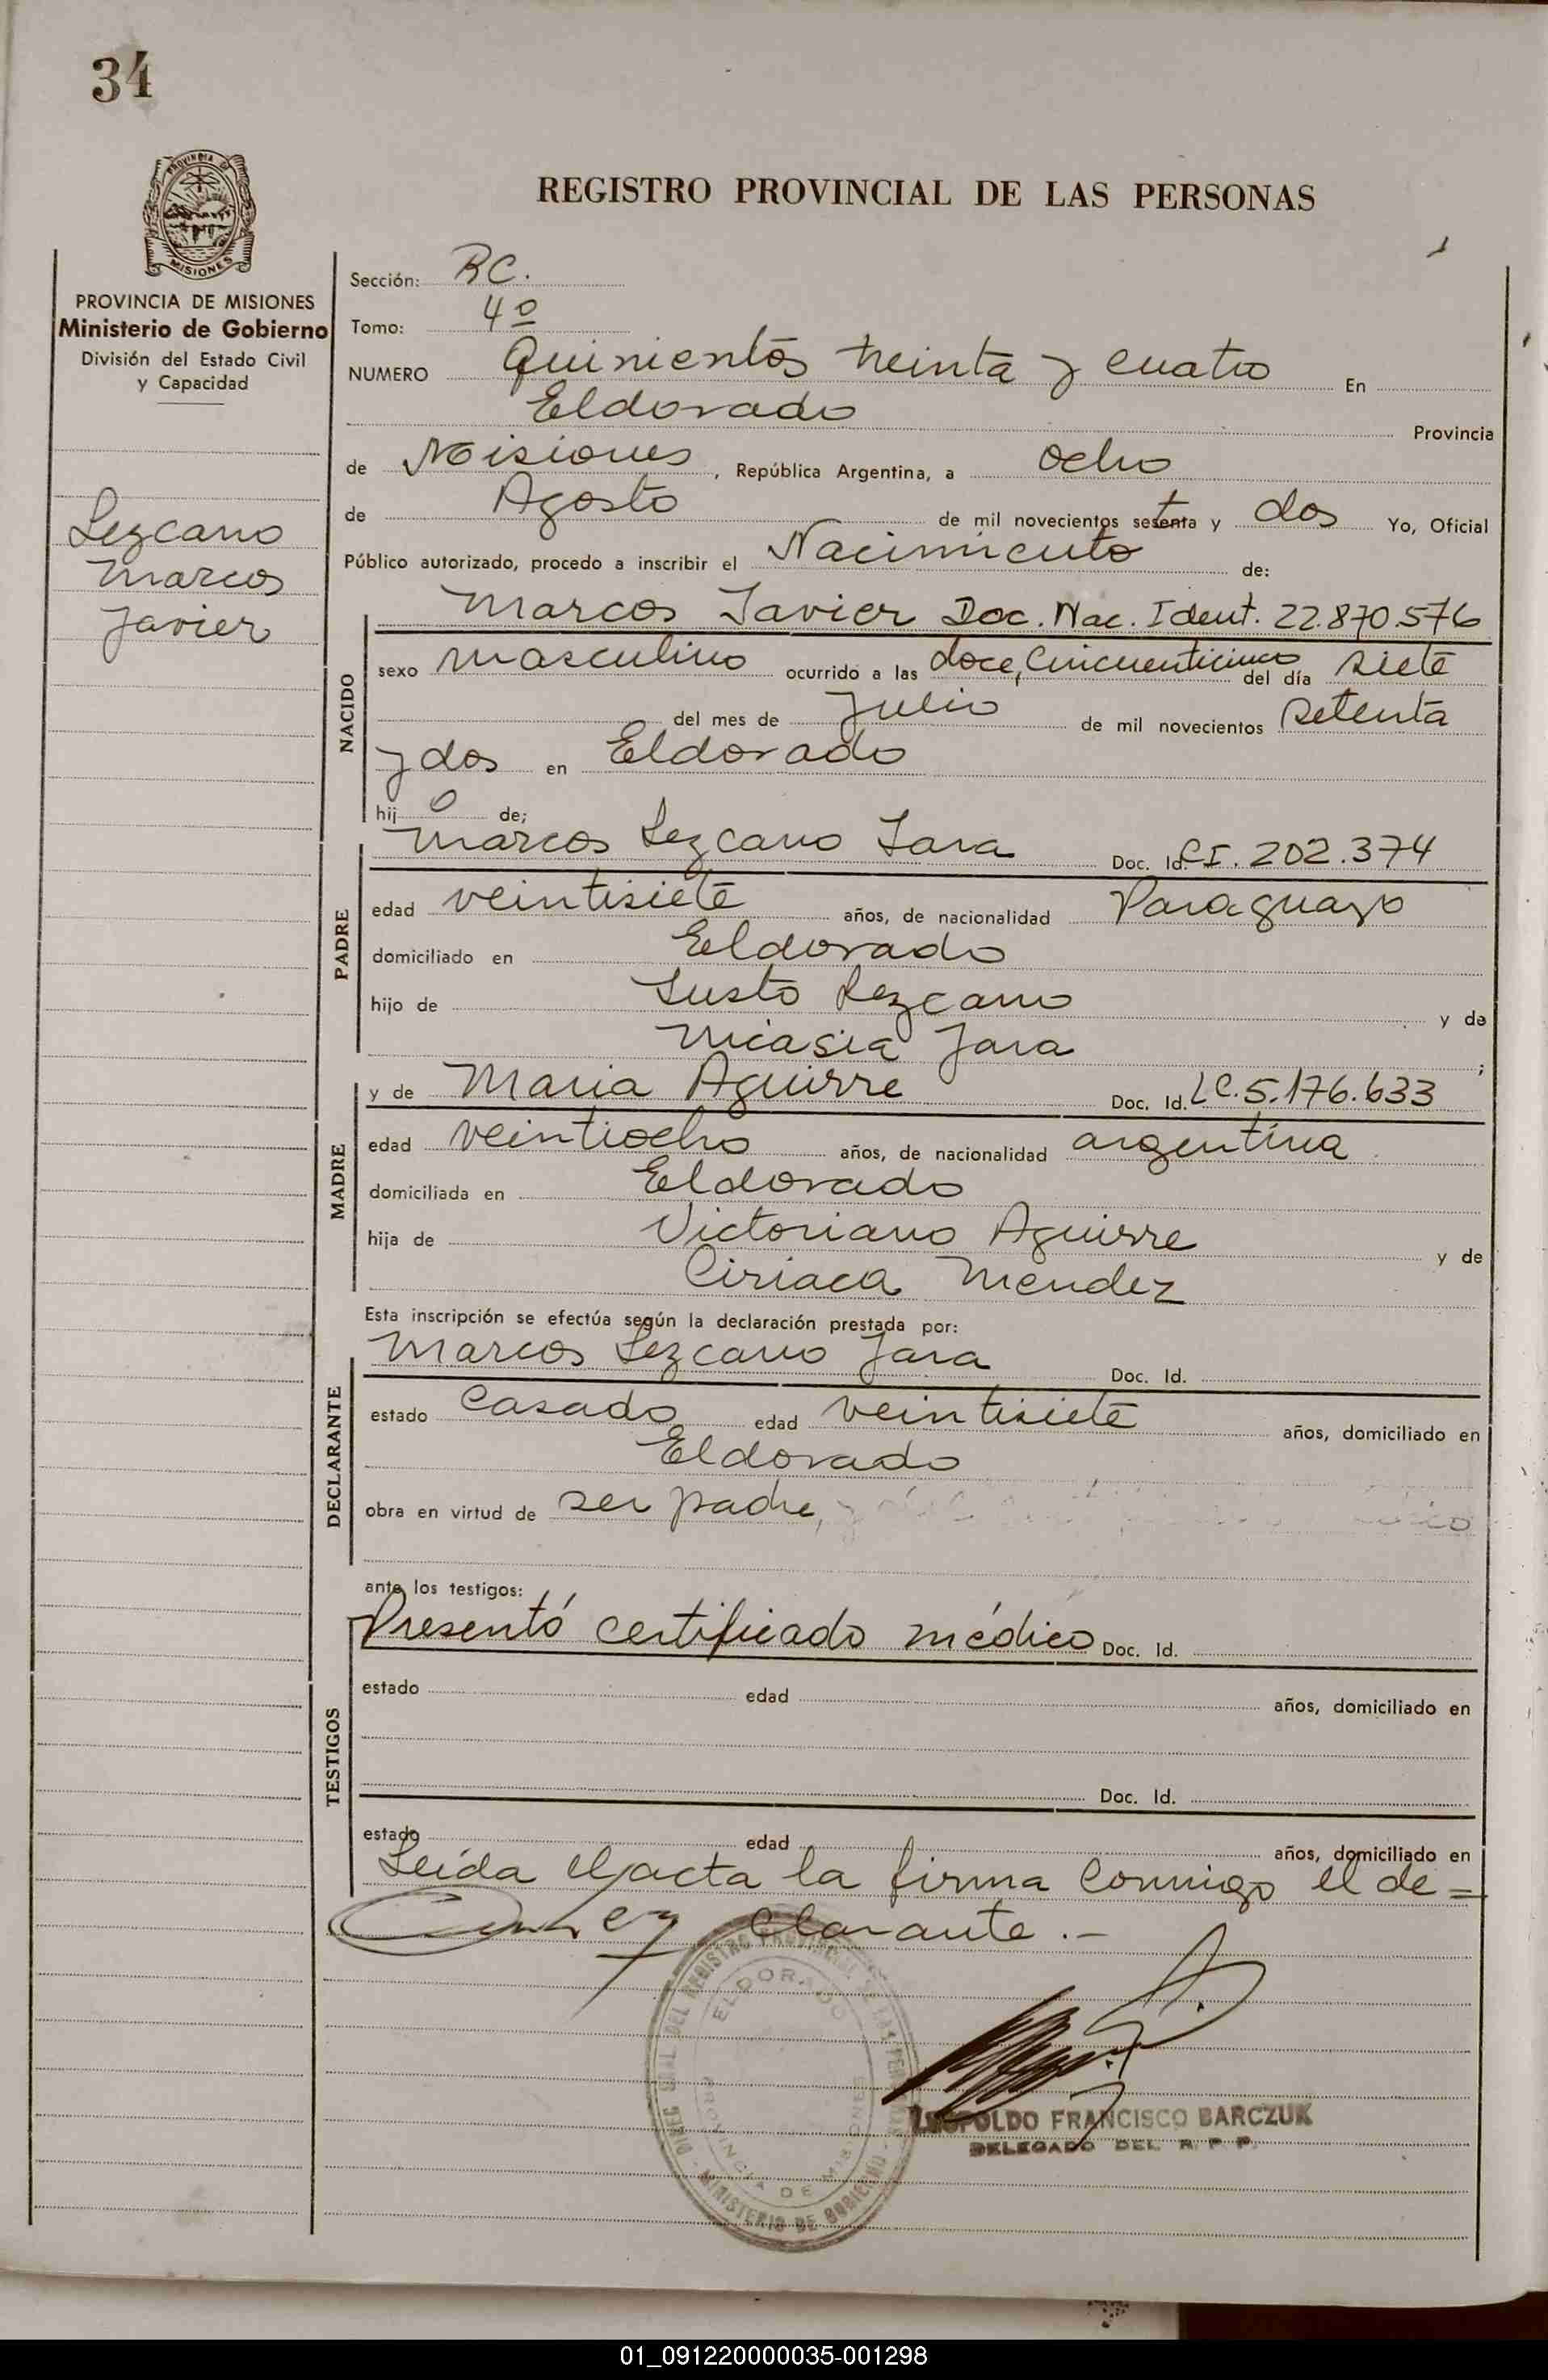 34
PROVINCIA DE
MISIONES
PROVINCIA DE MISIONES
Ministerio de Gobierno
División del Estado Civil
y Capacidad
Lezcano
Marcos
Javier
REGISTRO PROVINCIAL DE LAS PERSONAS
Sección: RC.
Tomo: 4º
NUMERO Quinientos treinta y cuatro En
Eldorado Provincia
de Misiones, República Argentina, a ocho
de Agosto de mil novecientos setenta y dos Yo, Oficial
Público autorizado, procedo a inscribir el Nacimiento de:
NACIDO
Marcos Javier Doc. Nac. Ident. 22.870.576
sexo masculino ocurrido a las doce, cincuenticinco del día siete
del mes de Julio de mil novecientos setenta
y dos en Eldorado
hijo de;
PADRE
Marcos Lezcano Jara Doc. Id. CI. 202.374
edad veintisiete años, de nacionalidad Paraguayo
domiciliado en Eldorado
hijo de Justo Lezcano y de
Nicasia Jara ;
MADRE
y de Maria Aguirre Doc. Id. LC. 5.176.633
edad veintiocho años, de nacionalidad argentina
domiciliada en Eldorado
hija de Victoriano Aguirre y de
Ciriaca Mendez
Esta inscripción se efectúa según la declaración prestada por:
DECLARANTE
Marcos Lezcano Jara Doc. Id.
estado casado edad veintisiete años, domiciliado en
Eldorado
obra en virtud de ser padre,
ante los testigos:
TESTIGOS
Presentó certificado médico Doc. Id.
estado edad años, domiciliado en
Doc. Id.
estado edad años, domiciliado en
Leída el acta la firma conmigo el de=
clarante.-
DEL REGISTRO PROVINCIAL DE LAS PERSONAS
ELDORADO
PROVINCIA DE MISIONES
MINISTERIO DE GOBIERNO
LEOPOLDO FRANCISCO BARCZUK
DELEGADO DEL R. P. P.
01_091220000035-001298